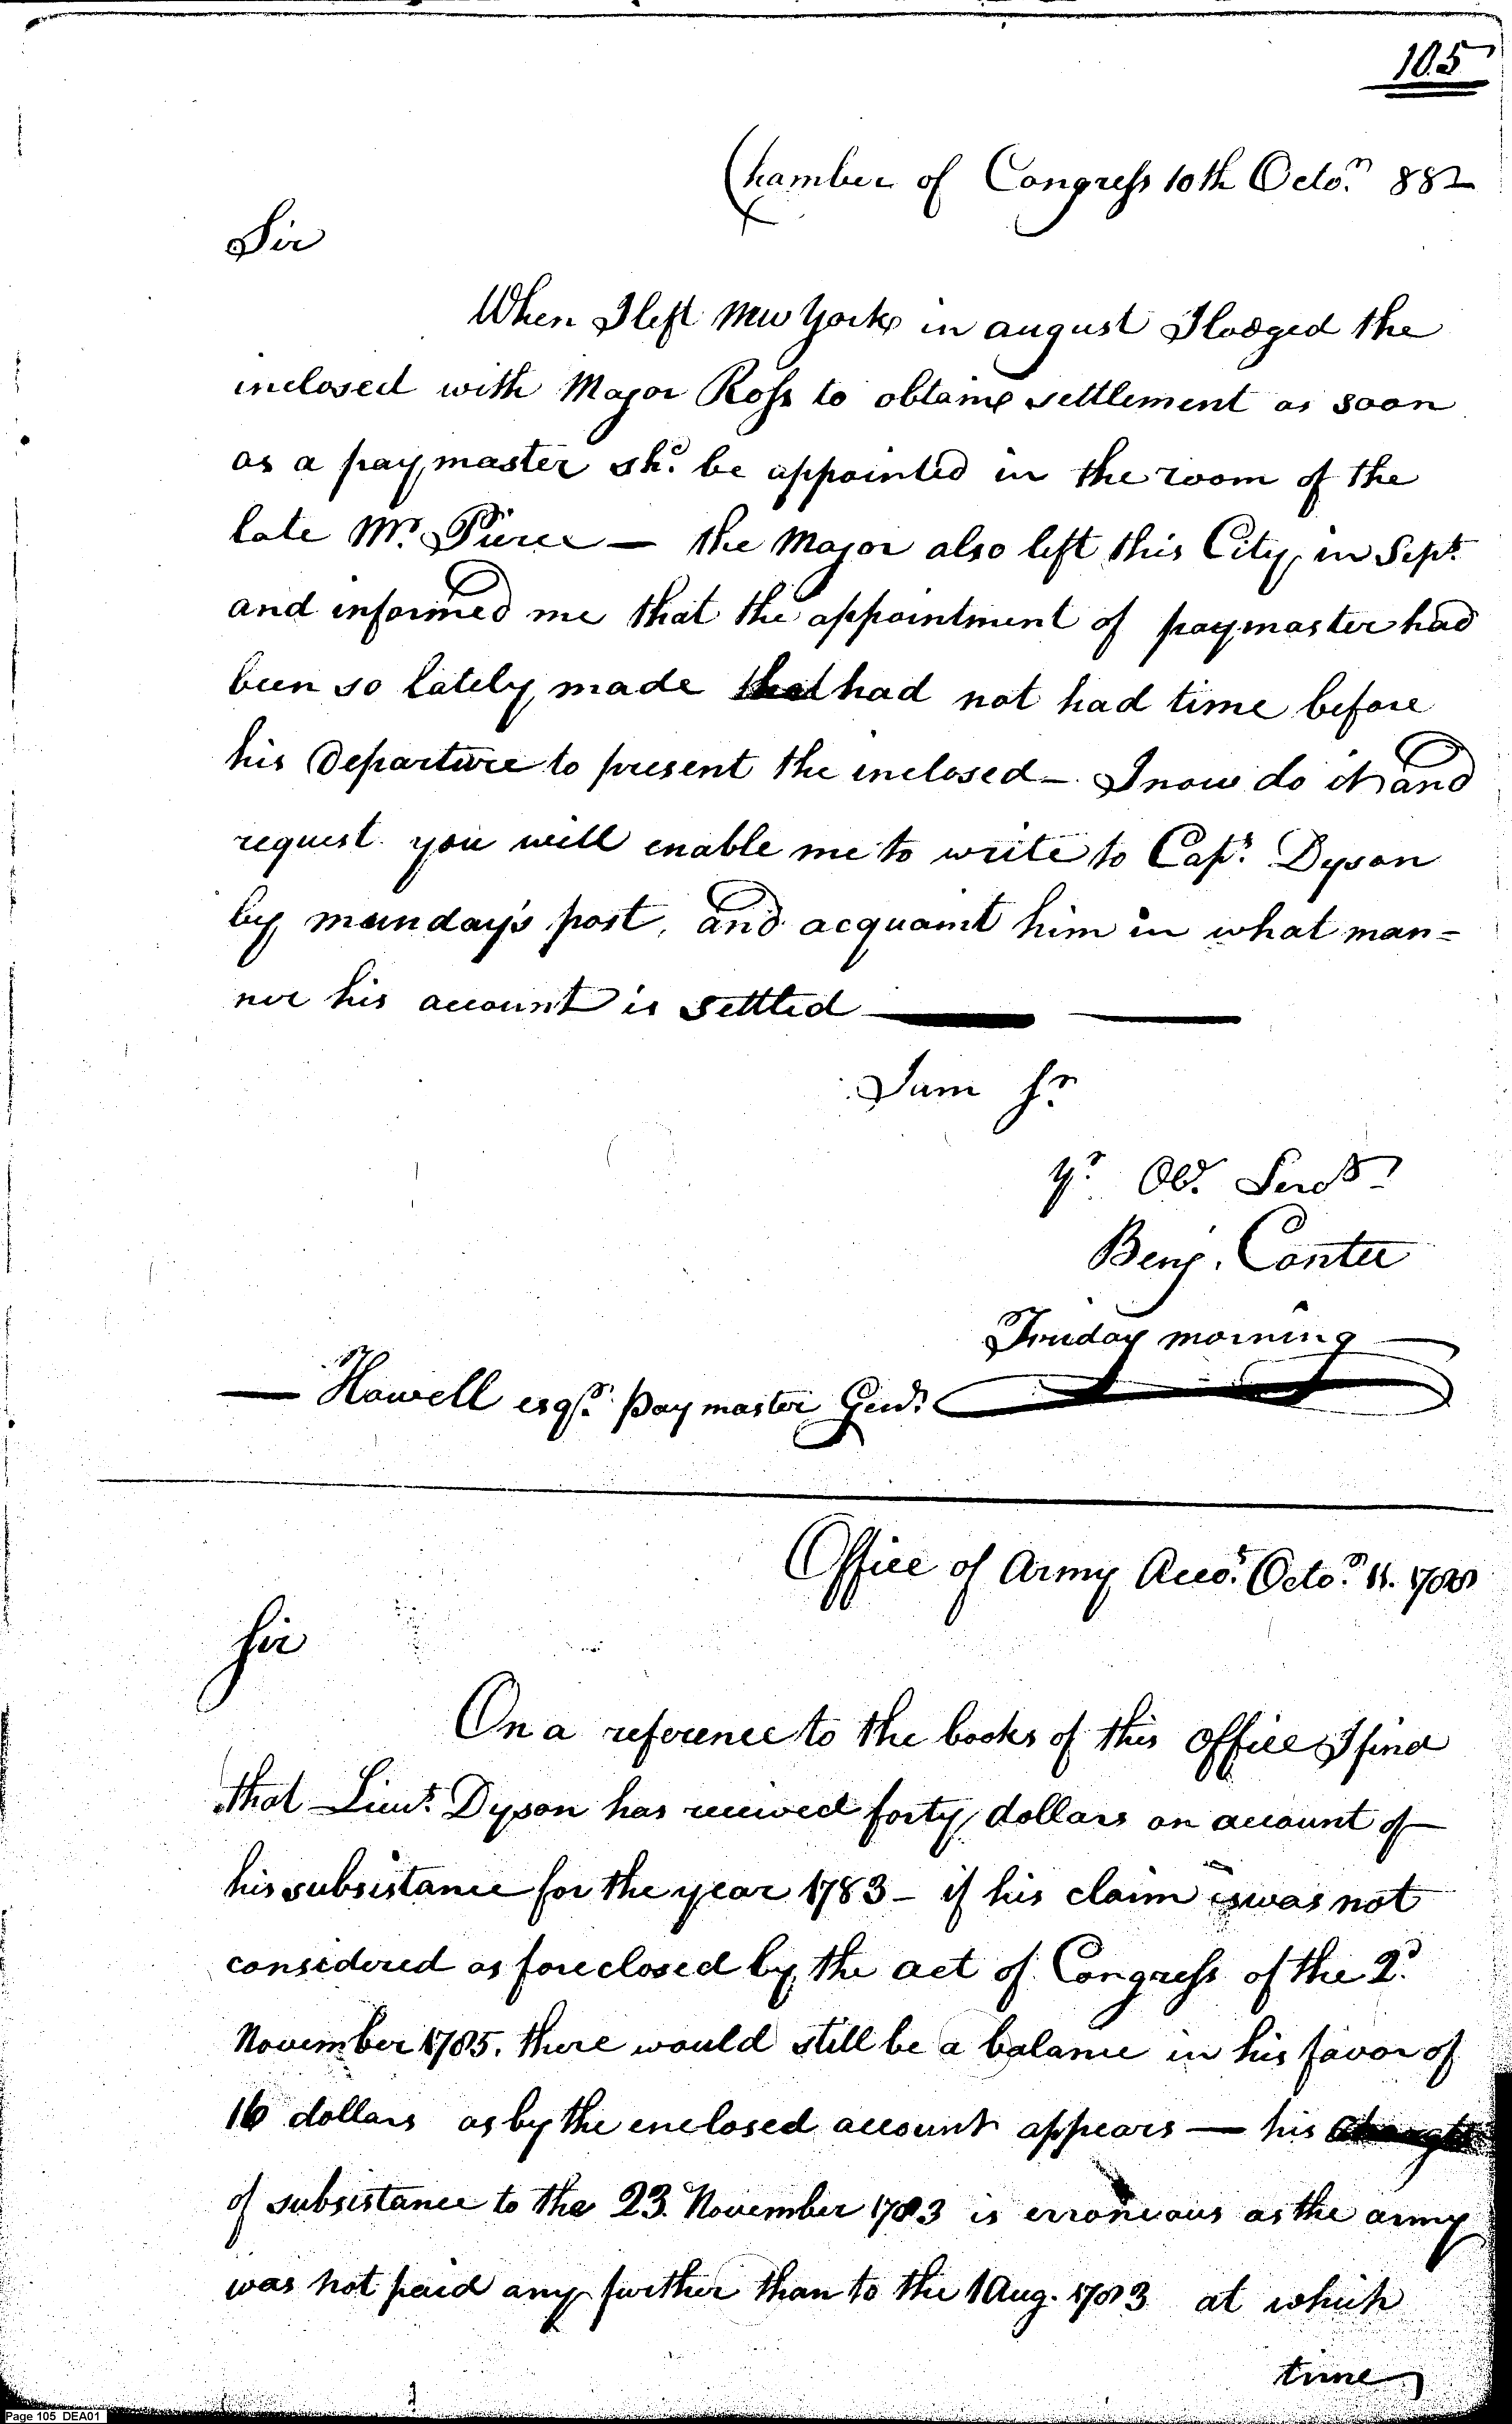 105
Chamber of Congress 10th Octor. 882
Sir
When I left New York in august I lodged the
inclosed with Major Ross to obtaine settlement as soon
as a paymaster shd. be appointed in the room of the
late Mr. Pierce — the Major also left this City in Sept.
and informed me that the appointment of paymaster had
been so lately made that had not had time before
his Departure to present the inclosed — I now do it and
request you will enable me to write to Capt. Dyson
by munday's post, and acquaint him in what man=
ner his account is settled
I am Sr.
Yr. Ob. Servt.
Benj. Contee
Friday morning
— Howell esqr. paymaster Genl.
Office of Army Accots. Octor. 11. 1788
Sir
On a reference to the books of this office I find
that Lieut. Dyson has received forty dollars on account of
his subsistance for the year 1783 — if his claim is was not
considered as foreclosed by the act of Congress of the 2d.
November 1785. there would still be a balance in his favor of
16 dollars as by the enclosed account appears — his
of subsistance to the 23. November 1783 is erroneous as the army
was not paid any further than to the 1 Aug. 1783 at which
time
Page 105 DEA01